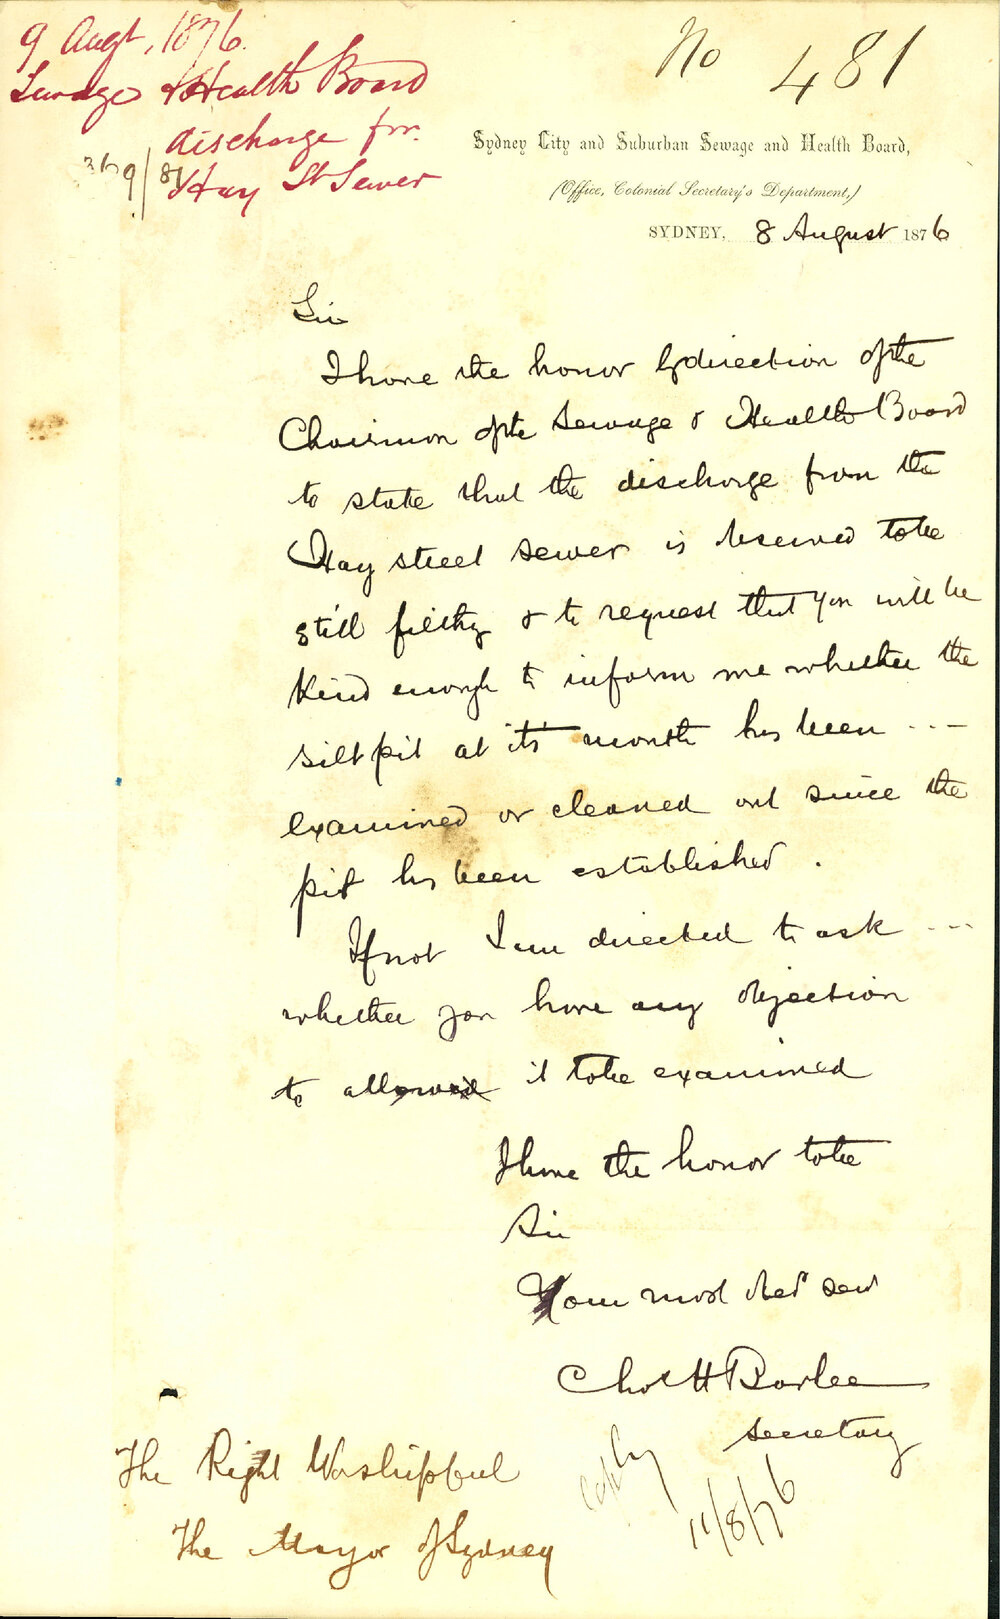 9 Augt, 1876.
Sewage & Health Board
discharge fm.
Hay St Sewer
No 481
Sydney City and Suburban Sewage and Health Board,
(Office, Colonial Secretary's Department,)
SYDNEY, 8 August 1876
Sir
I have the honor by direction of the
Chairman of the Sewage & Health Board
to state that the discharge from the
Hay street sewer is observed to be
still filthy & to request that you will be
kind enough to inform me whether the
silt pit at its mouth has been ---
examined or cleaned out since the
pit has been established.
If not I am directed to ask ---
whether you have any objection
to allowed it to be examined
I have the honor to be
Sir
Your most obed serv
Chas H Barlee
secretary
The Right Worshipful
The Mayor of Sydney
11/8/76